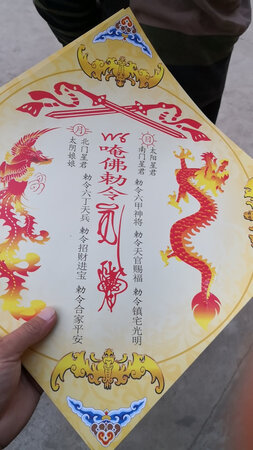 日 太阳星君
南门星君 敕令六甲神将 敕令天官赐福 敕令镇宅光明
唵佛敕令
月 北门星君
太阴娘娘 敕令六丁天兵 敕令招财进宝 敕令合家平安